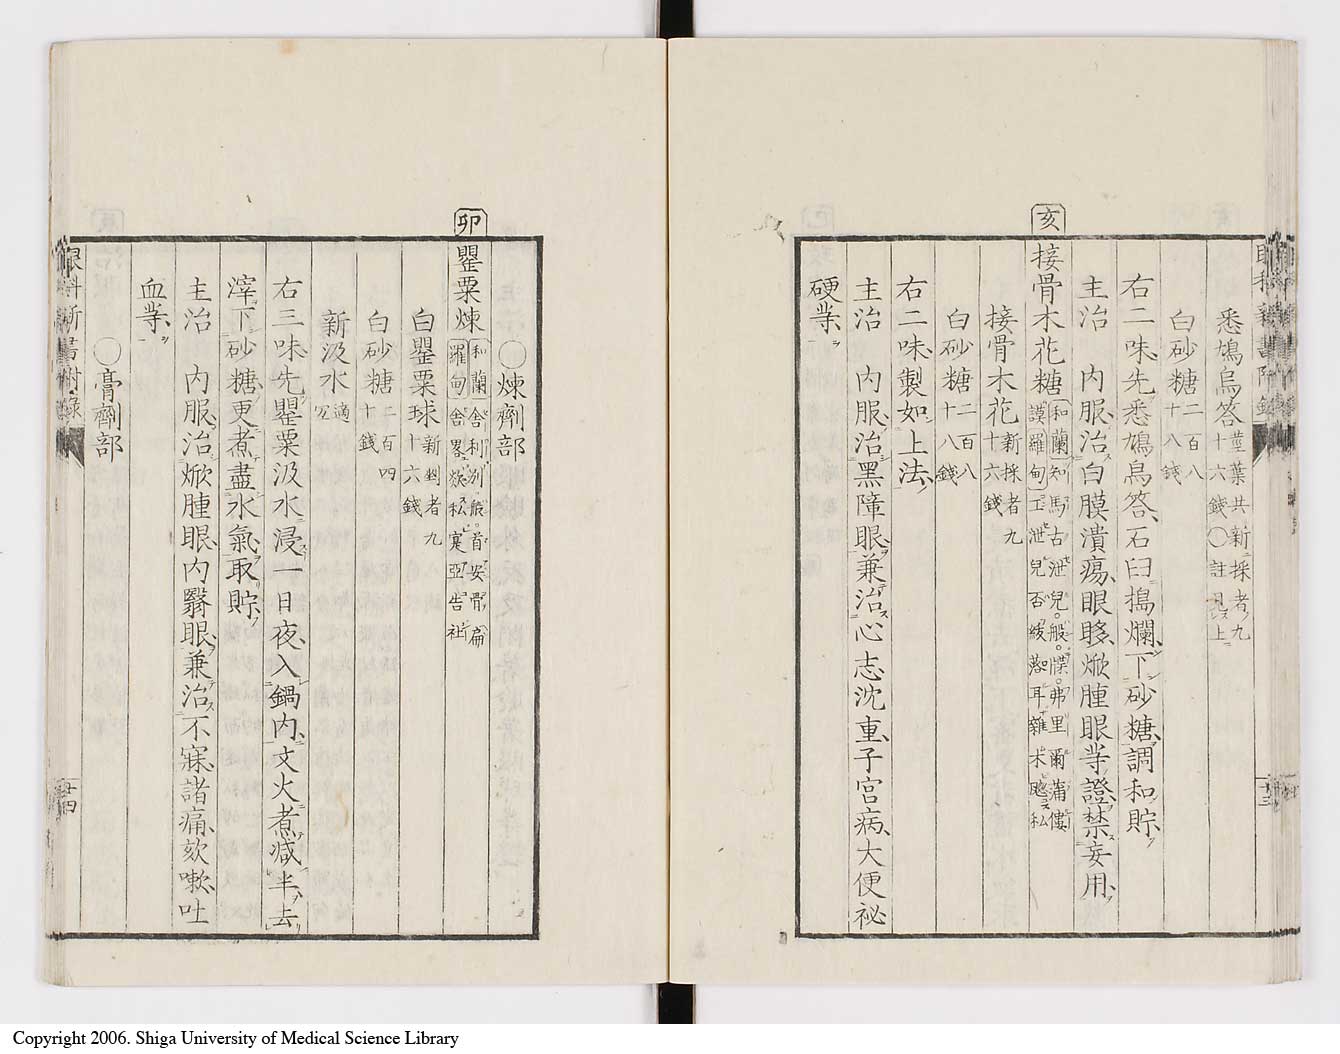 眼科新書附錄
悉鳩烏荅 莖葉共新採者九十六錢〇註見上
白砂糖 二百八十八錢
右二味先悉鳩烏荅石臼搗爛下砂糖調和貯
主治 內服治白膜潰瘍眼眵焮腫眼等證禁妄用
亥 接骨木花糖 和蘭 知馬古泄兒般牒弗里爾蒲僂 謨羅甸
接骨木花 新採者九十六錢
白砂糖 二百八十八錢
右二味製如上法
主治 內服治黑障眼兼治心志沈重子宮病大便祕
硬等
廿三
〇煉劑部
卯 罌粟煉 和蘭 舍利別般首安骨扁 羅甸
白罌粟球 新剉者九十六錢
白砂糖 二百四十錢
新汲水 適宜
右三味先罌粟汲水浸一日夜入鍋內文火煮減半去
滓下砂糖更煮盡水氣取貯
主治 內服治焮腫眼內翳眼兼治不寐諸痛欬嗽吐
血等
〇膏劑部
眼科新書附錄
廿四
Copyright 2006. Shiga University of Medical Science Library